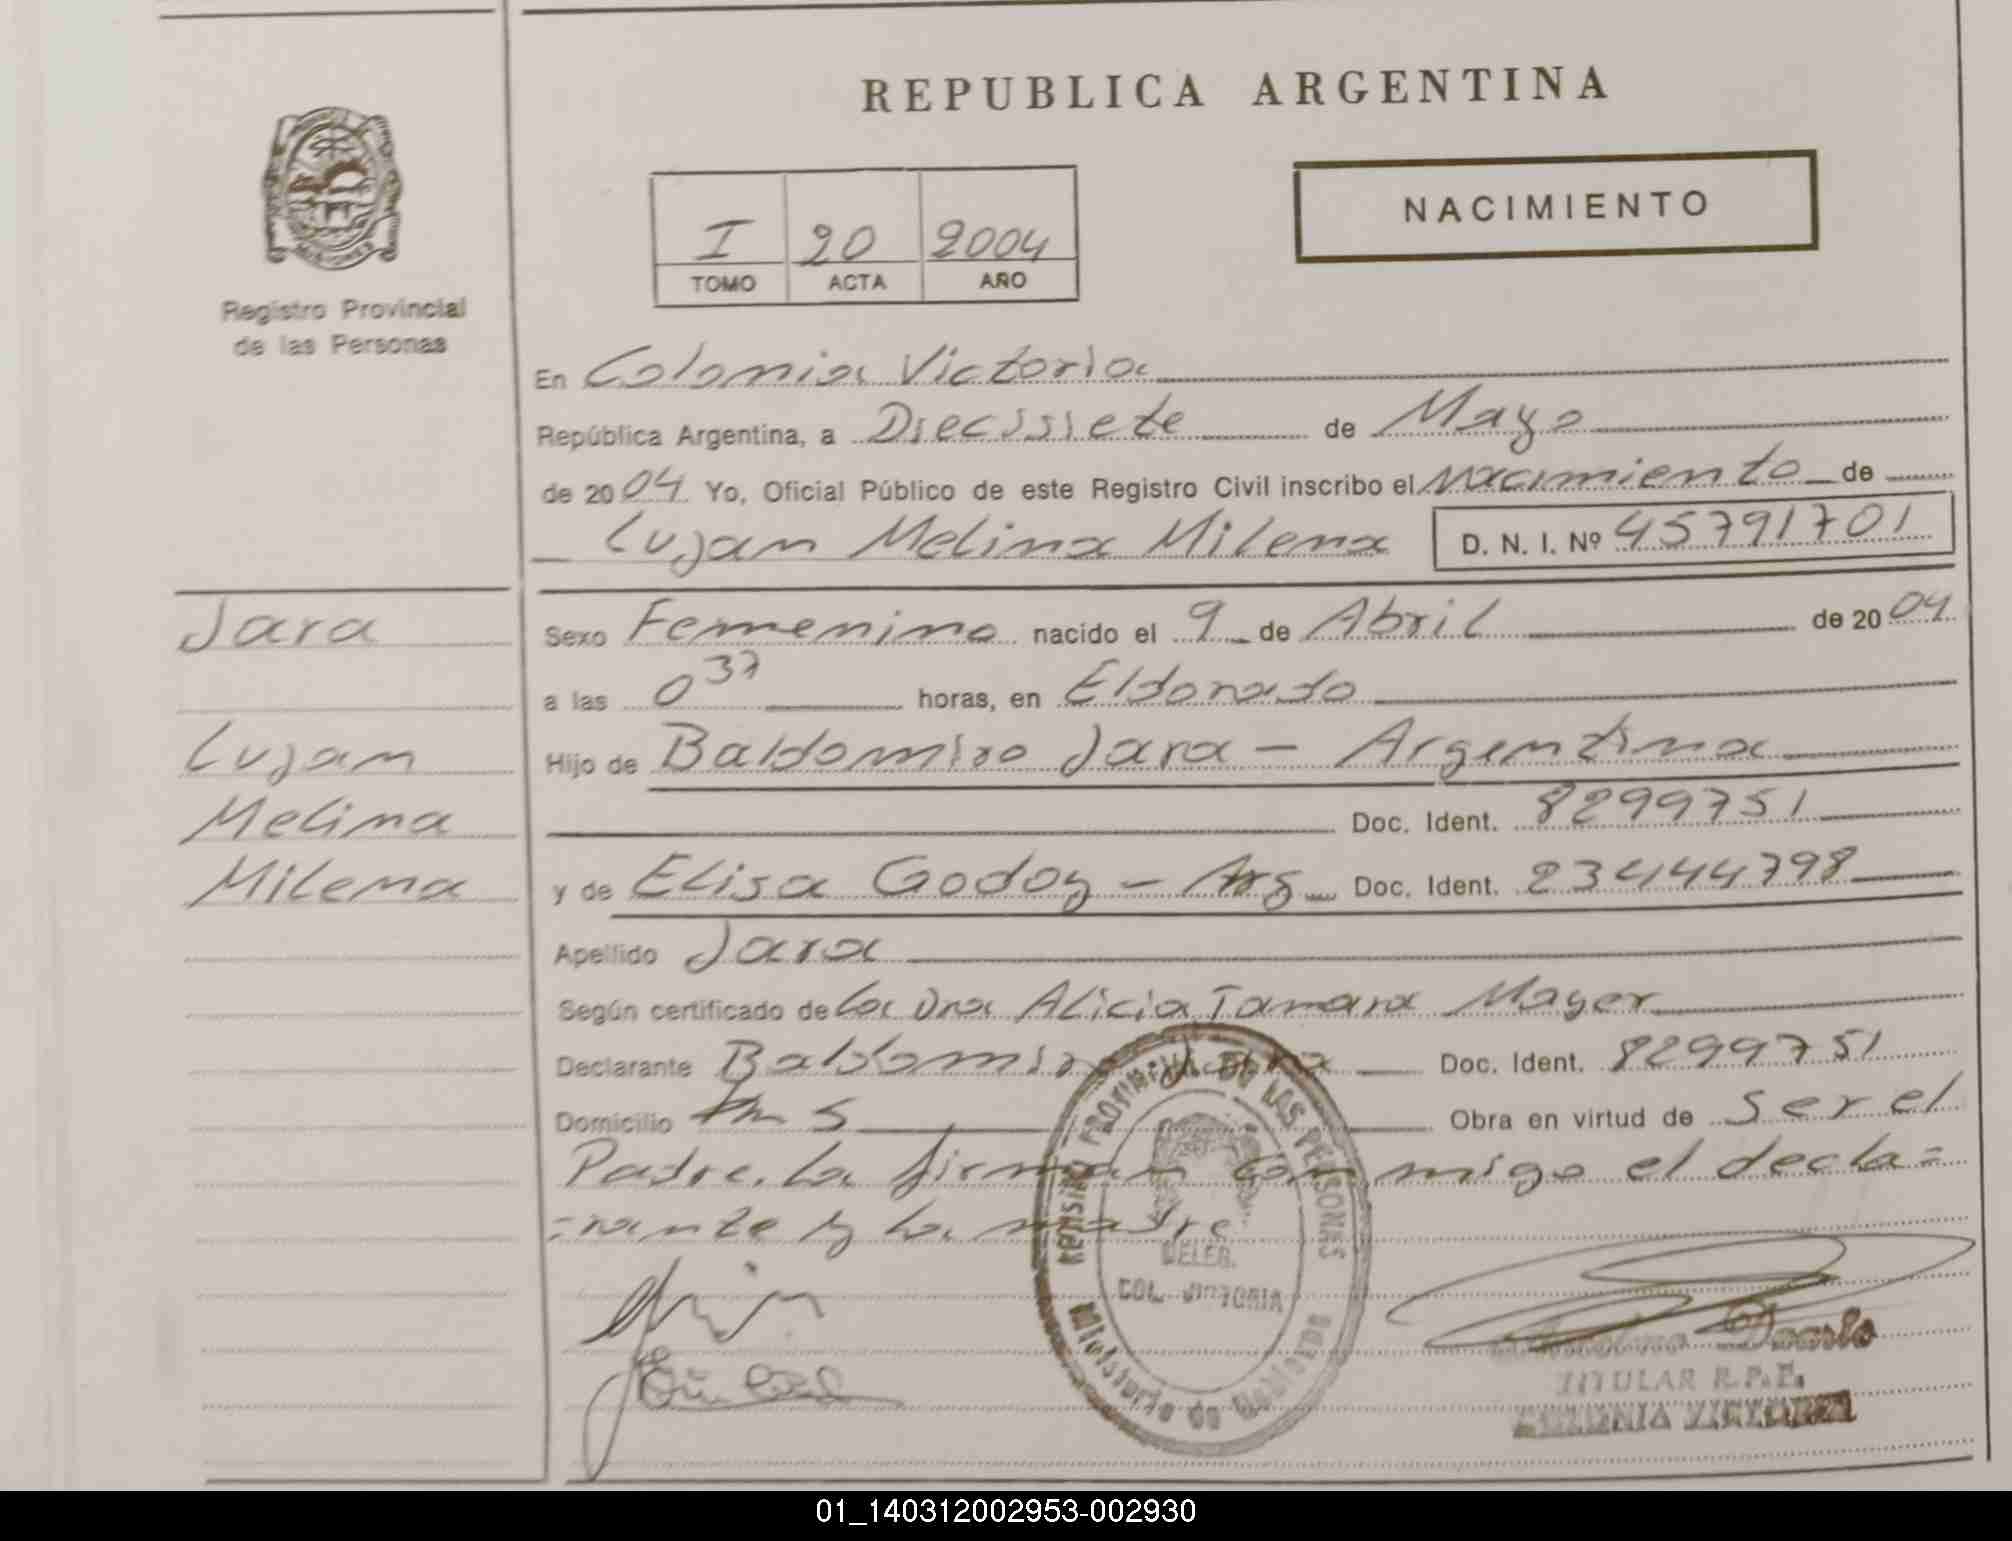 REPUBLICA ARGENTINA
NACIMIENTO
I 20 2004
TOMO ACTA AÑO
Registro Provincial
de las Personas
En Colonia Victoria
República Argentina, a Diecisiete de Mayo
de 2004 Yo, Oficial Público de este Registro Civil inscribo el nacimiento de
Lujan Melina Milena D. N. I. Nº 45791701
Jara
Lujan
Melina
Milena
Sexo Femenino nacido el 9 de Abril de 2004
a las 0 37 horas, en Eldorado
Hijo de Baldomiro Jara - Argentina
Doc. Ident. 8299751
y de Elisa Godoy - Arg Doc. Ident. 23444798
Apellido Jara
Según certificado de la Dra Alicia Tamara Mayer
Declarante Baldomiro Jara Doc. Ident. 8299751
Domicilio Obra en virtud de ser el
Padre. La firman conmigo el decla=
=rante y la madre
REGISTRO PROVINCIAL DE LAS PERSONAS
DELEG.
COL. VICTORIA
Ministerio de Gobierno
TITULAR R.P.P.
COLONIA VICTORIA
01_140312002953-002930